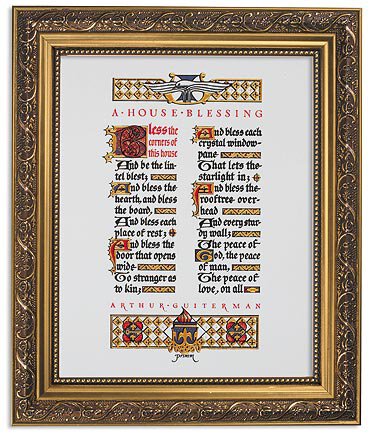 A·HOUSE·BLESSING
Bless the
corners of
this house
And be the lin-
tel blest;
And bless the
hearth, and bless
the board,
And bless each
place of rest;
And bless the
door that opens
wide
To stranger as
to kin;
And bless each
crystal window-
pane
That lets the
starlight in;
And bless the
rooftree over-
head
And every stur-
dy wall;
The peace of
God, the peace
of man,
The peace of
love, on all
ARTHUR·GUITERMAN